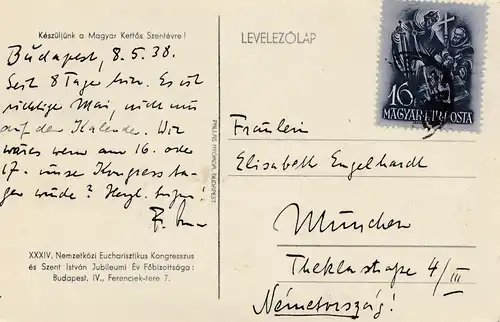 Készüljünk a Magyar Kettős Szentévre!
Budapest, 8.5.38.
Seit 8 Tage hier. Es ist
richtige Mai, nicht nur
auf dem Kalender. Wie
wäre es wenn am 16. oder
17. unser Kongress
tagen würde? Herzl.
XXXIV. Nemzetközi Eucharisztikus Kongresszus
és Szent István Jubileumi Év Főbizottsága:
Budapest, IV., Ferenciek-tere 7.
PALLAS NYOMDA BUDAPEST
LEVELEZŐLAP
16
MAGYAR POSTA
Fräulein
Elisabeth Engelhardt
München
Theklastraße 4/III
Németország!